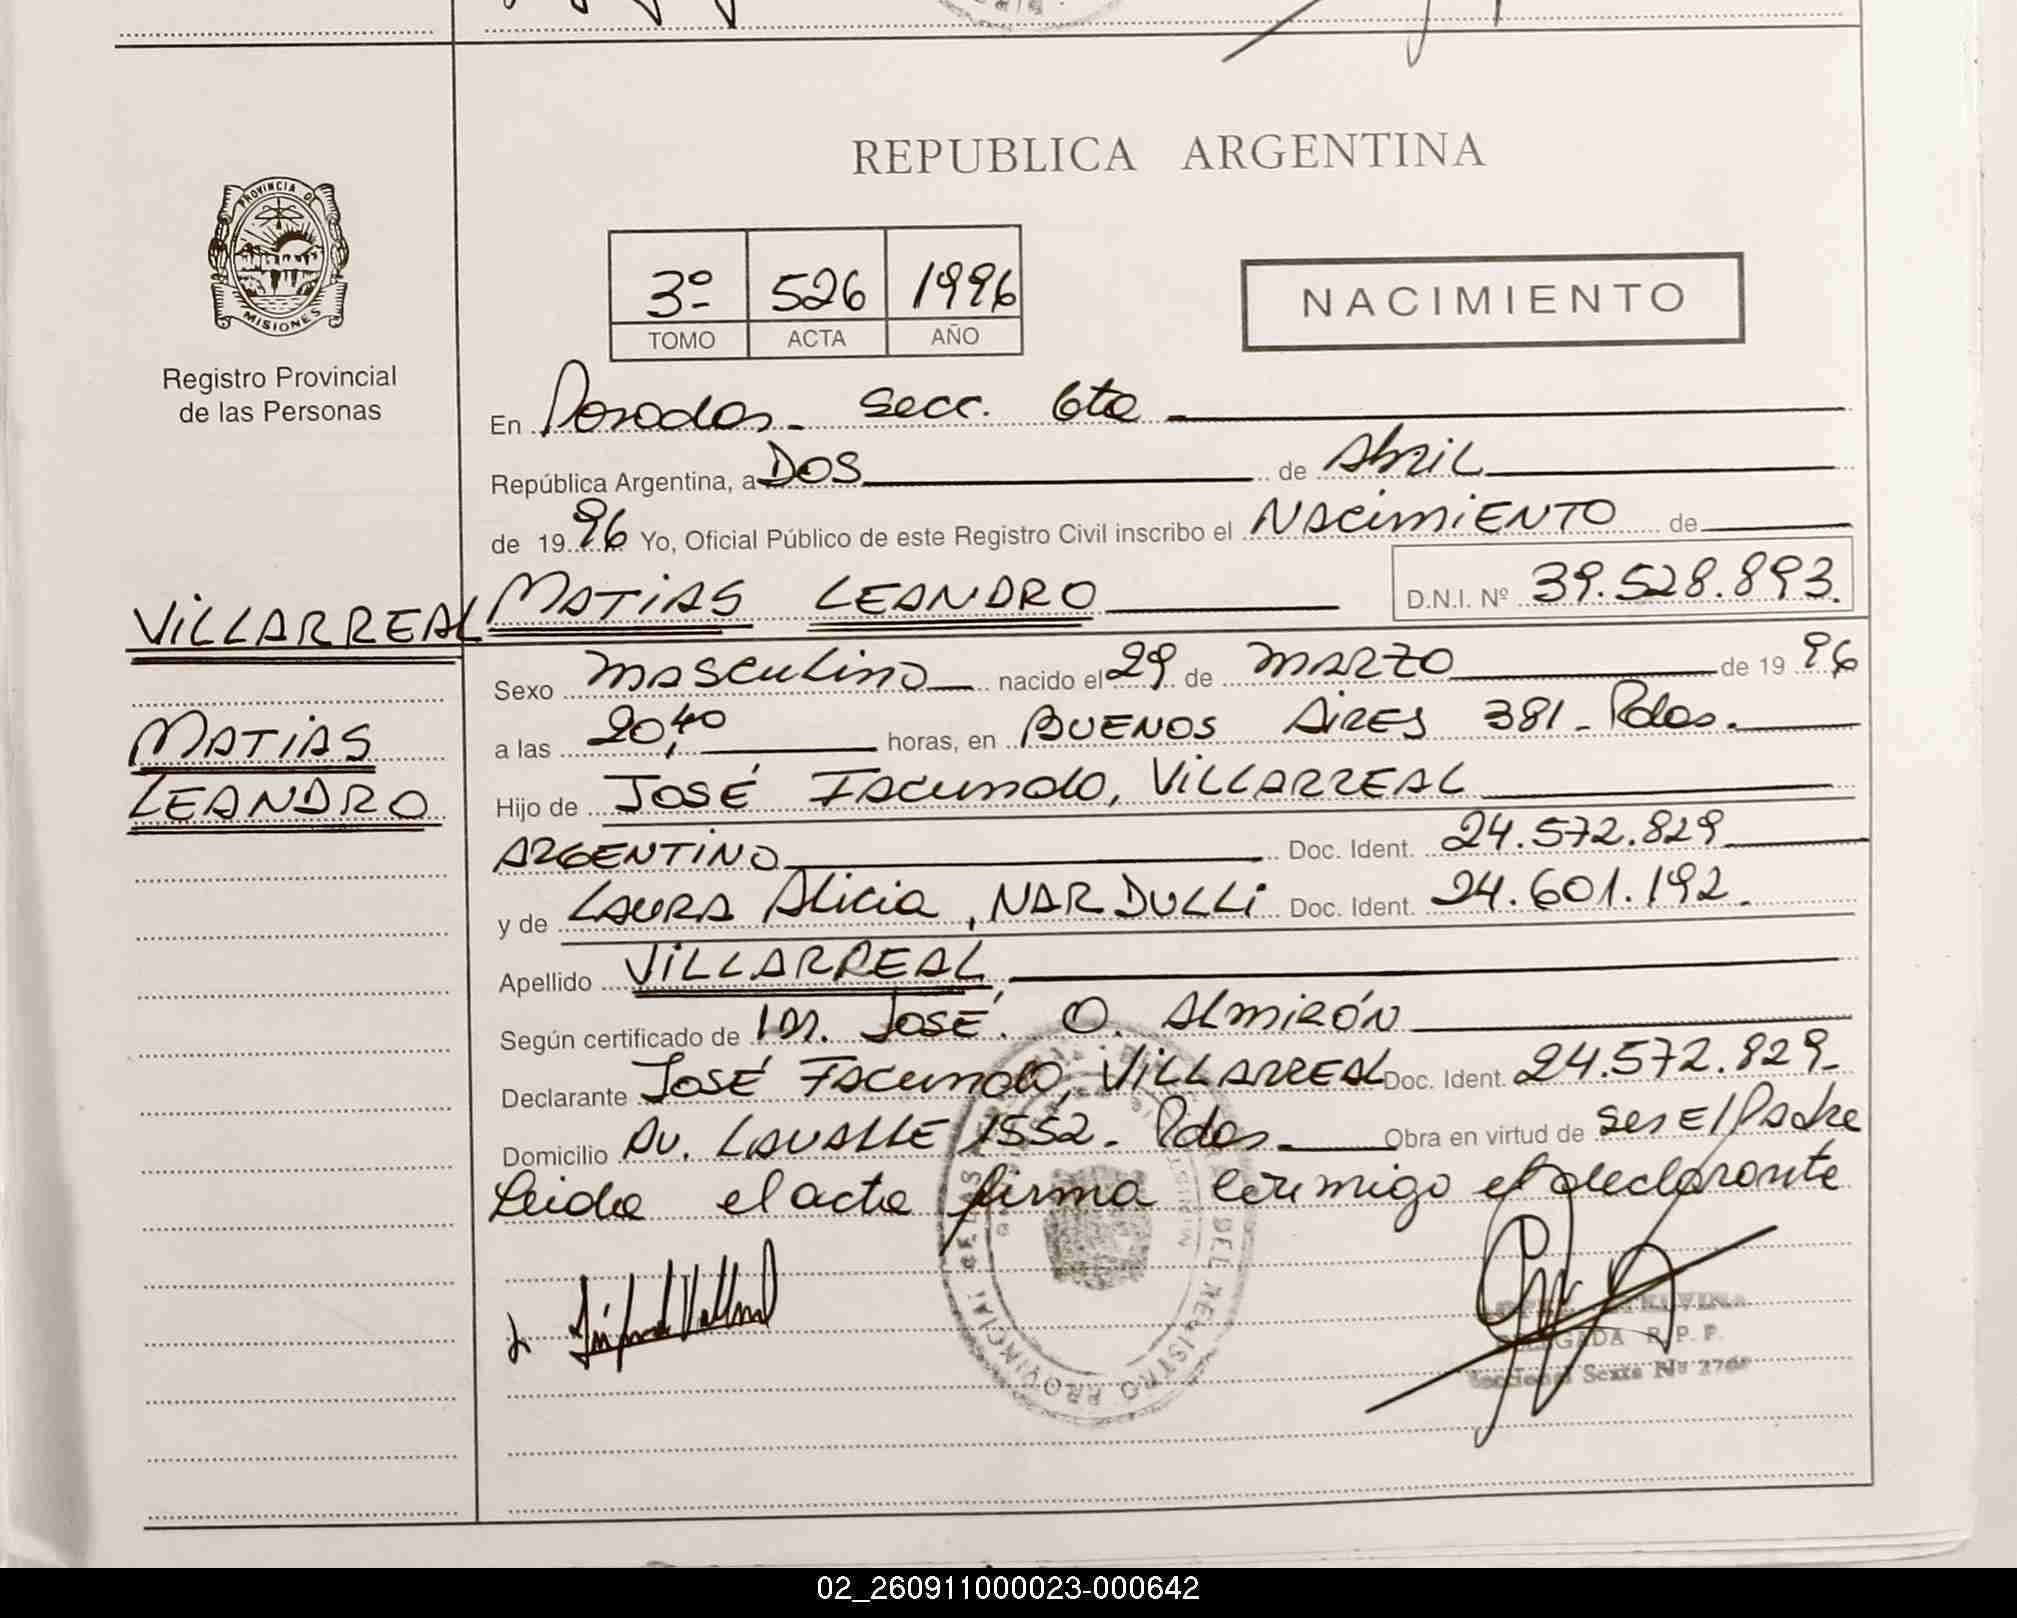 REPUBLICA ARGENTINA
PROVINCIA DE
MISIONES
Registro Provincial
de las Personas
3º 526 1996
TOMO ACTA AÑO
NACIMIENTO
En Posadas - secc. 6ta
República Argentina, a DOS de Abril
de 1996 Yo, Oficial Público de este Registro Civil inscribo el NACIMIENTO de
VILLARREAL MATIAS LEANDRO D.N.I. Nº 39.528.893.
Sexo MASCULINO nacido el 29 de MARZO de 1996
MATIAS
a las 20,40 horas, en BUENOS AIRES 381 - Pdas.
LEANDRO
Hijo de JOSÉ FACUNDO, VILLARREAL
ARGENTINO Doc. Ident. 24.572.829
y de LAURA Alicia, NARDULLI Doc. Ident. 24.601.192.
Apellido VILLARREAL
Según certificado de Dr. JOSÉ O. ALMIRÓN
Declarante JOSÉ FACUNDO, VILLARREAL Doc. Ident. 24.572.829.
Domicilio AV. LAVALLE 1552 - Pdas. Obra en virtud de ser El Padre
Leida el acta firma conmigo el declarante
REGISTRO PROVINCIAL DE LAS
DELEGADA R.P.P.
Seccional Sexta Nº
02_260911000023-000642